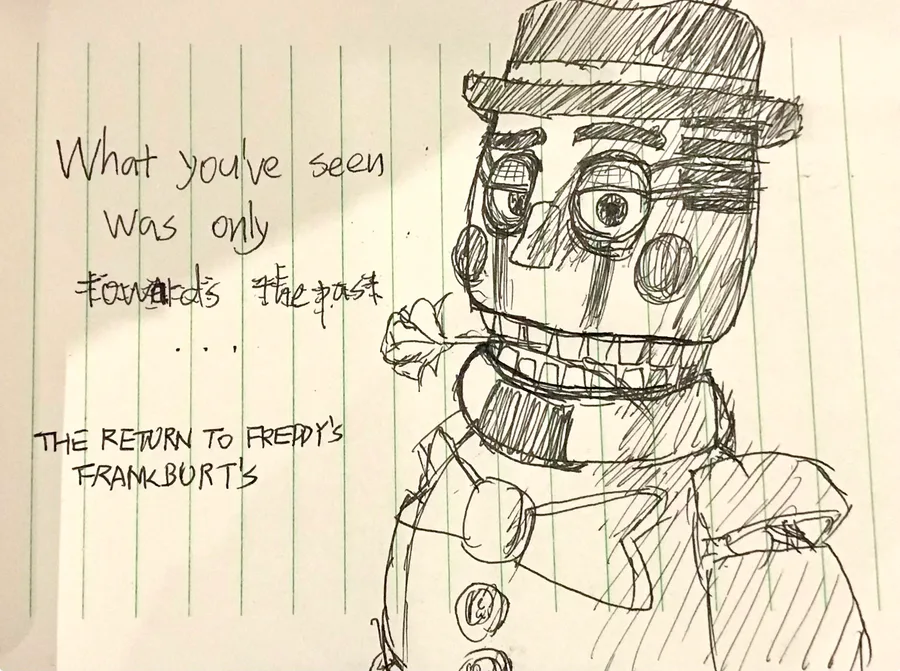 What you've seen
was only
towards the past
...
THE RETURN TO FREDDY'S
FRANKBURT'S